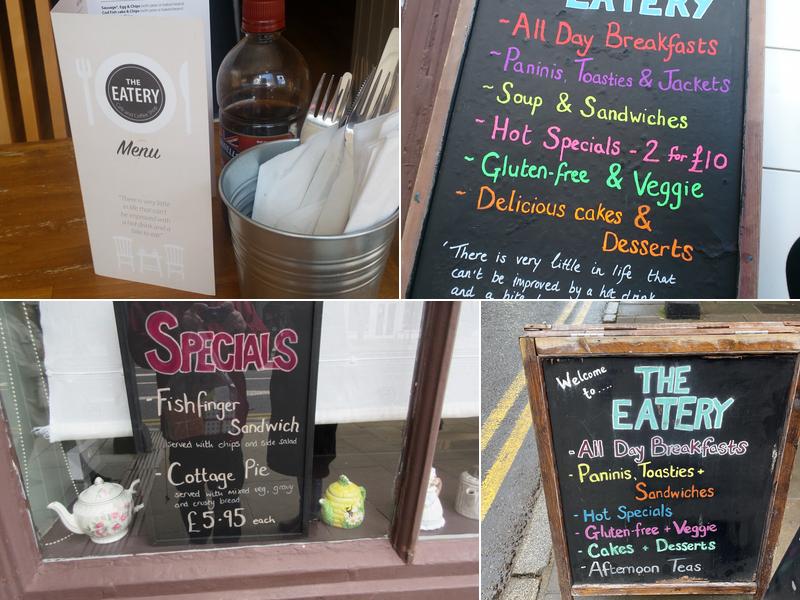 Sausage, Egg & Chips
Cod Fish cake & Chips
THE
EATERY
Menu
"There is very little
in life that can't
be improved with
a hot drink and a
bite to eat"
EATERY
- All Day Breakfasts
- Paninis, Toasties & Jackets
~ Soup & Sandwiches
- Hot Specials - 2 for £10
~ Gluten-free & Veggie
~ Delicious cakes &
Desserts
'There is very little in life that
can't be improved by a hot drink
and a bite
SPECIALS
- Fishfinger
Sandwich
served with chips and side salad
- Cottage Pie
served with mixed veg, gravy
and crusty bread
£5.95 each
Welcome
to....
THE
EATERY
- All Day Breakfasts
- Paninis, Toasties +
Sandwiches
- Hot Specials
- Gluten-free + Veggie
- Cakes + Desserts
- Afternoon Teas